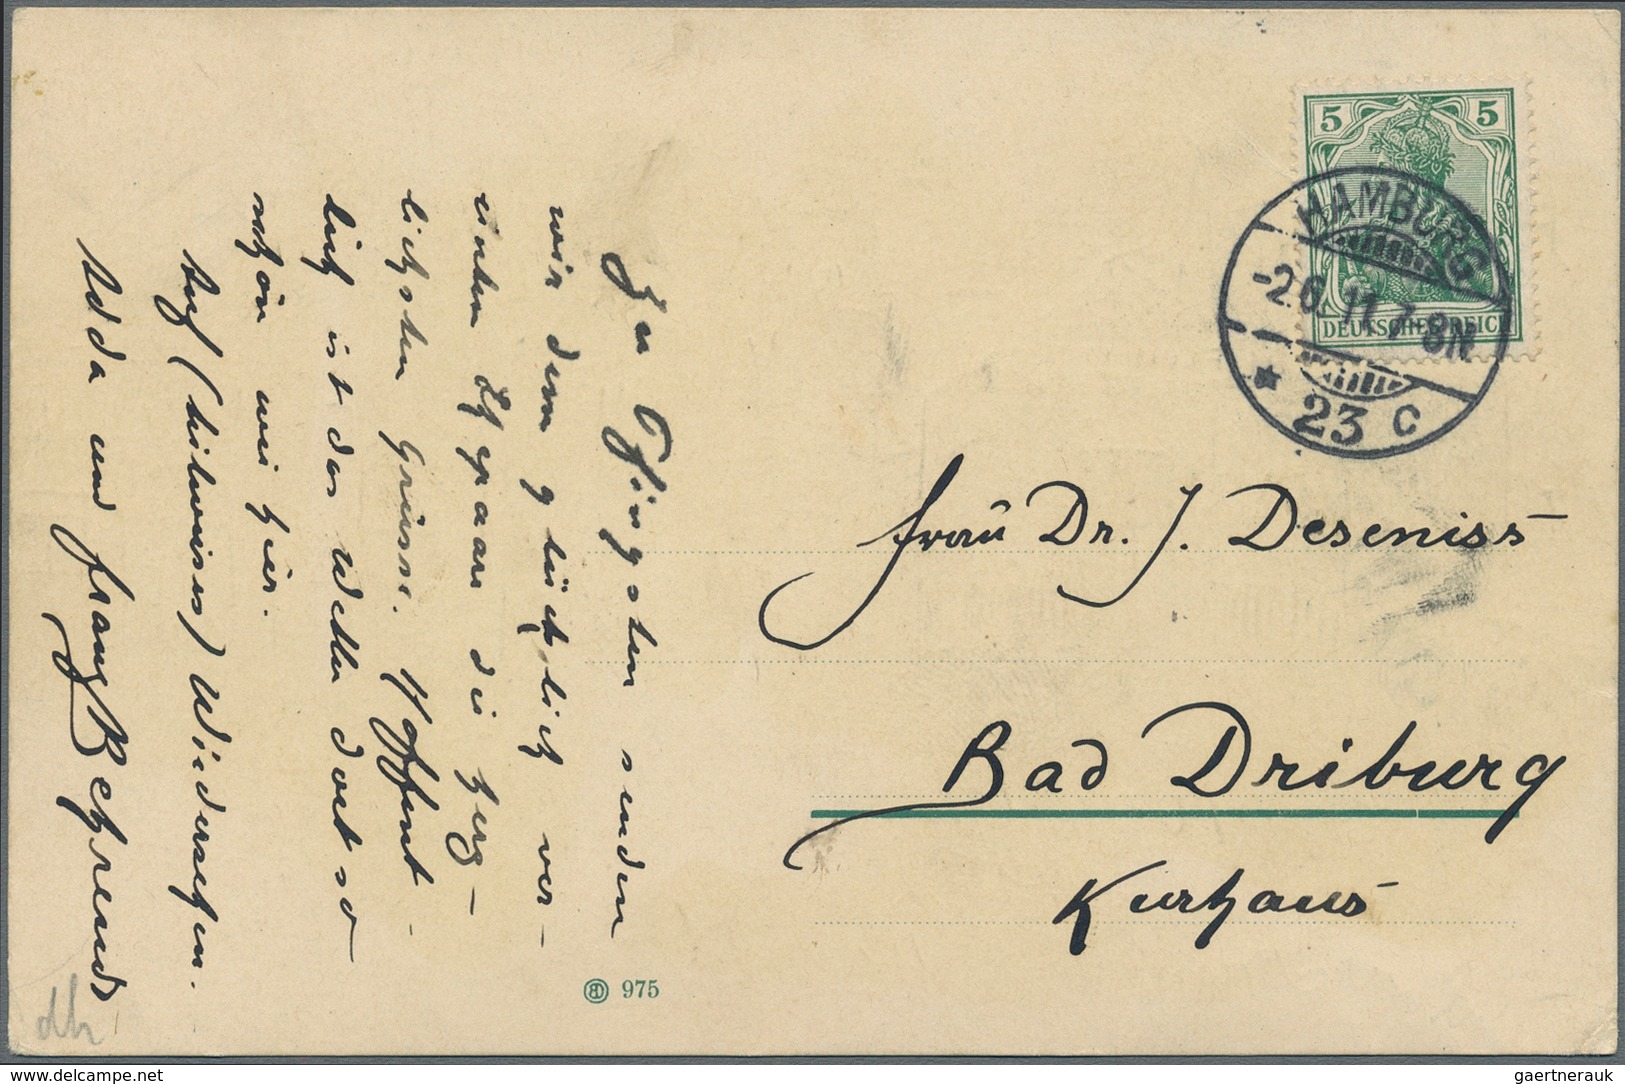 5 5
DEUTSCHES REICH
HAMBURG
-2.6.11.7-8N
* 23 C
Frau Dr. J. Deseniss
Bad Driburg
Kurhaus
Zu Pfingsten senden
wir dem glücklich ver-
einten Ehepaar die herz-
lichsten Grüsse. Hoffent-
lich ist das Wetter dort so
schön wie hier.
Auf (teilweises) Wiedersehen.
und Franz Behrends
975
dh
delcampe.net
gaertnerauk